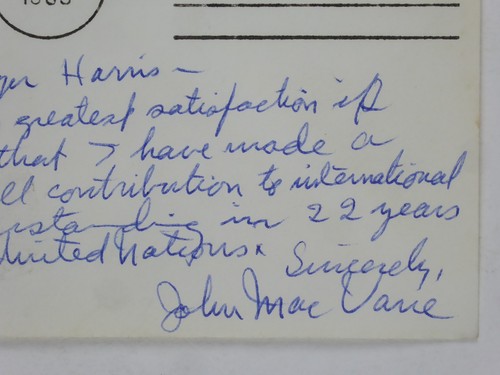 Harris —
greatest satisfaction is
that I have made a
contribution to international
standing in 22 years
United Nations. Sincerely,
John Mac Vane